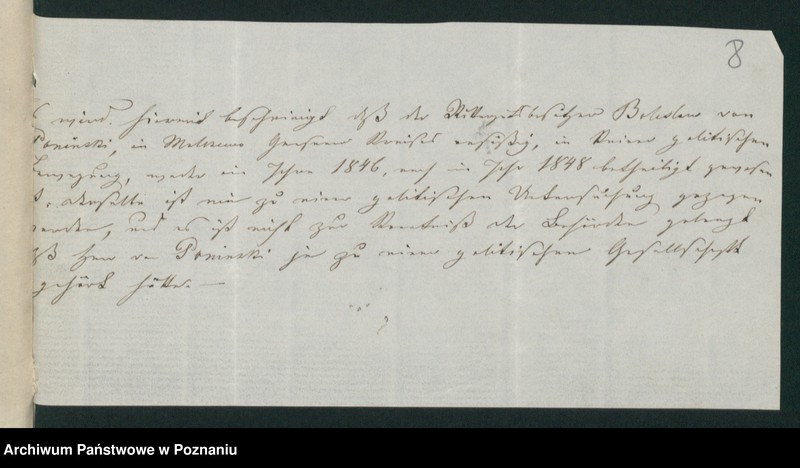 8
wird hiermit bescheinigt daß der Rittergutsbesitzer Boleslaw von
Poninski, in Gnesener Kreises ansäßig, in keiner politischen
Bewegung, weder im Jahre 1846, noch im Jahr 1848 betheiligt gewesen
derselbe ist nie zu einer politischen Untersuchung gezogen
worden, und es ist nicht zur Kenntniß der Behörden gelangt
daß Herr von Poninski je zu einer politischen Gesellschaft
gehört hätte. —
Archiwum Państwowe w Poznaniu